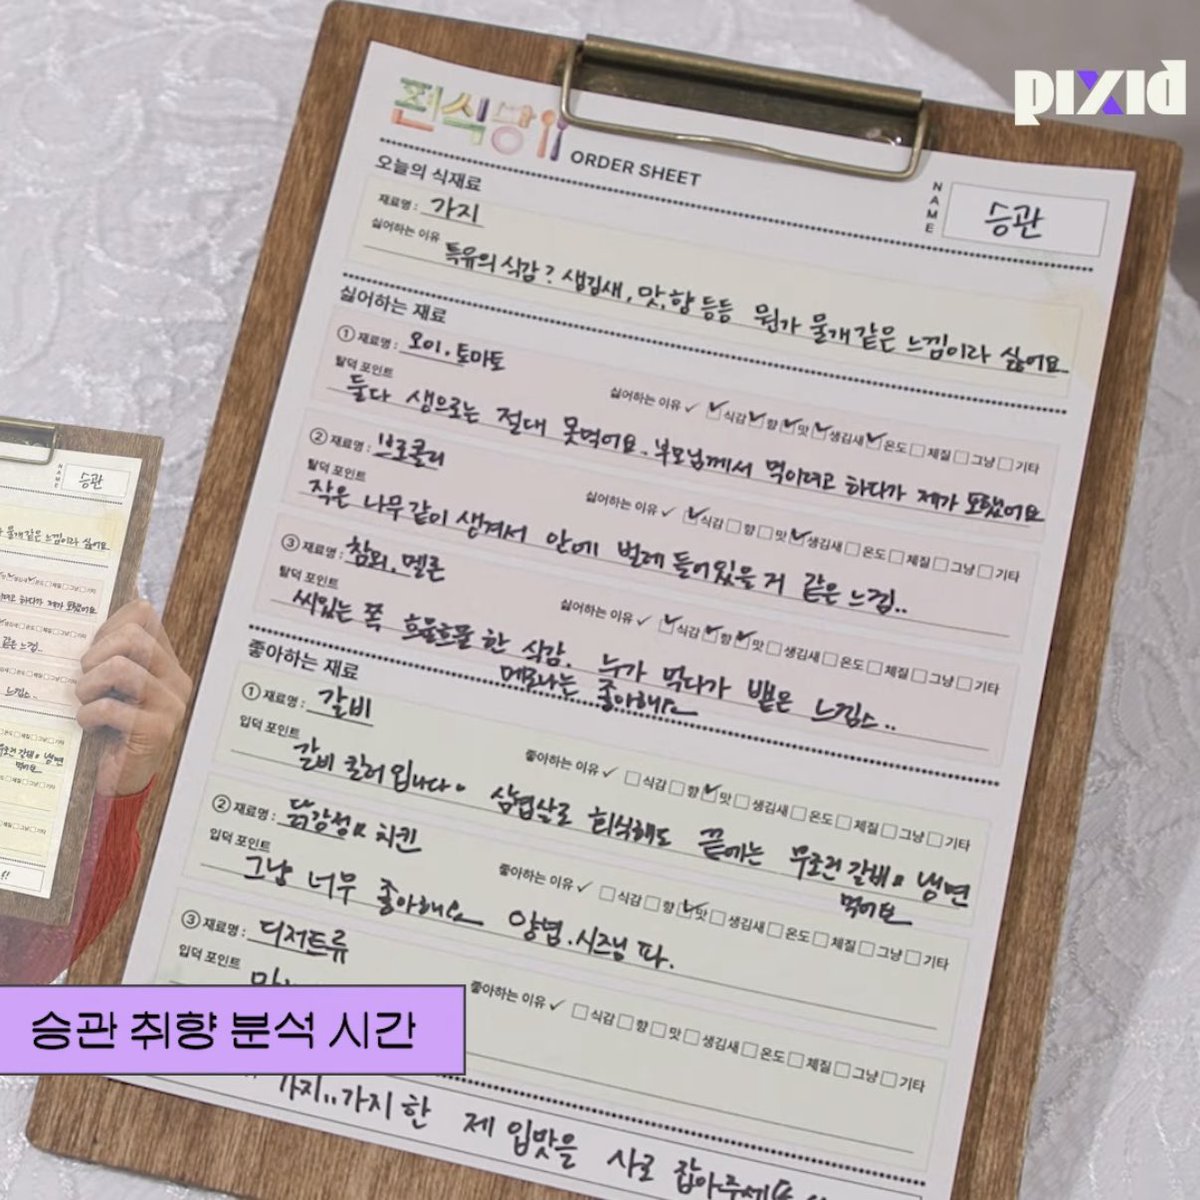 pixid
찐식당
ORDER SHEET
NAME
승관
오늘의 식재료
재료명 : 가지
싫어하는 이유
특유의 식감? 생김새, 맛, 향 등등 뭔가 물개같은 느낌이라 싫어요
싫어하는 재료
① 재료명 : 오이. 토마토
탈덕 포인트
싫어하는 이유 ✓ 식감 향 맛 생김새 온도 체질 그냥 기타
둘다 생으로는 절대 못먹어요.. 부모님께서 먹이려고 하다가 제가 토했어요
② 재료명 : 브로콜리
탈덕 포인트
싫어하는 이유 ✓ 식감 향 맛 생김새 온도 체질 그냥 기타
작은 나무같이 생겨서 안에 벌레 들어있을거 같은 느낌..
③ 재료명 : 참외, 멜론
탈덕 포인트
싫어하는 이유 ✓ 식감 향 맛 생김새 온도 체질 그냥 기타
씨있는 쪽 흐물흐물 한 식감. 누가 먹다가 뱉은 느낌스..
메로나는 좋아해요
좋아하는 재료
① 재료명 : 갈비
입덕 포인트
좋아하는 이유 ✓ 식감 향 맛 생김새 온도 체질 그냥 기타
갈비 킬러 입니다. 삼겹살로 회식해도 끝에는 무조건 갈비에 냉면
먹어요
② 재료명 : 닭강정과 치킨
입덕 포인트
좋아하는 이유 ✓ 식감 향 맛 생김새 온도 체질 그냥 기타
그냥 너무 좋아해요 양념. 시즈닝 파.
③ 재료명 : 디저트류
입덕 포인트
좋아하는 이유 ✓ 식감 향 맛 생김새 온도 체질 그냥 기타
승관 취향 분석 시간
가지..가지 한 제 입맛을 사로 잡아주세요